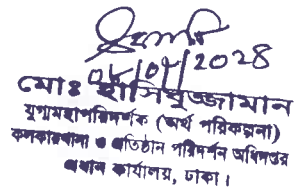 ০৮/০৭/2028
মোঃ হাসিবুজ্জামান
যুগ্মমহাপরিদর্শক (অর্থ পরিকল্পনা)
কলকারখানা ও প্রতিষ্ঠান পরিদর্শন অধিদপ্তর
প্রধান কার্যালয়, ঢাকা।